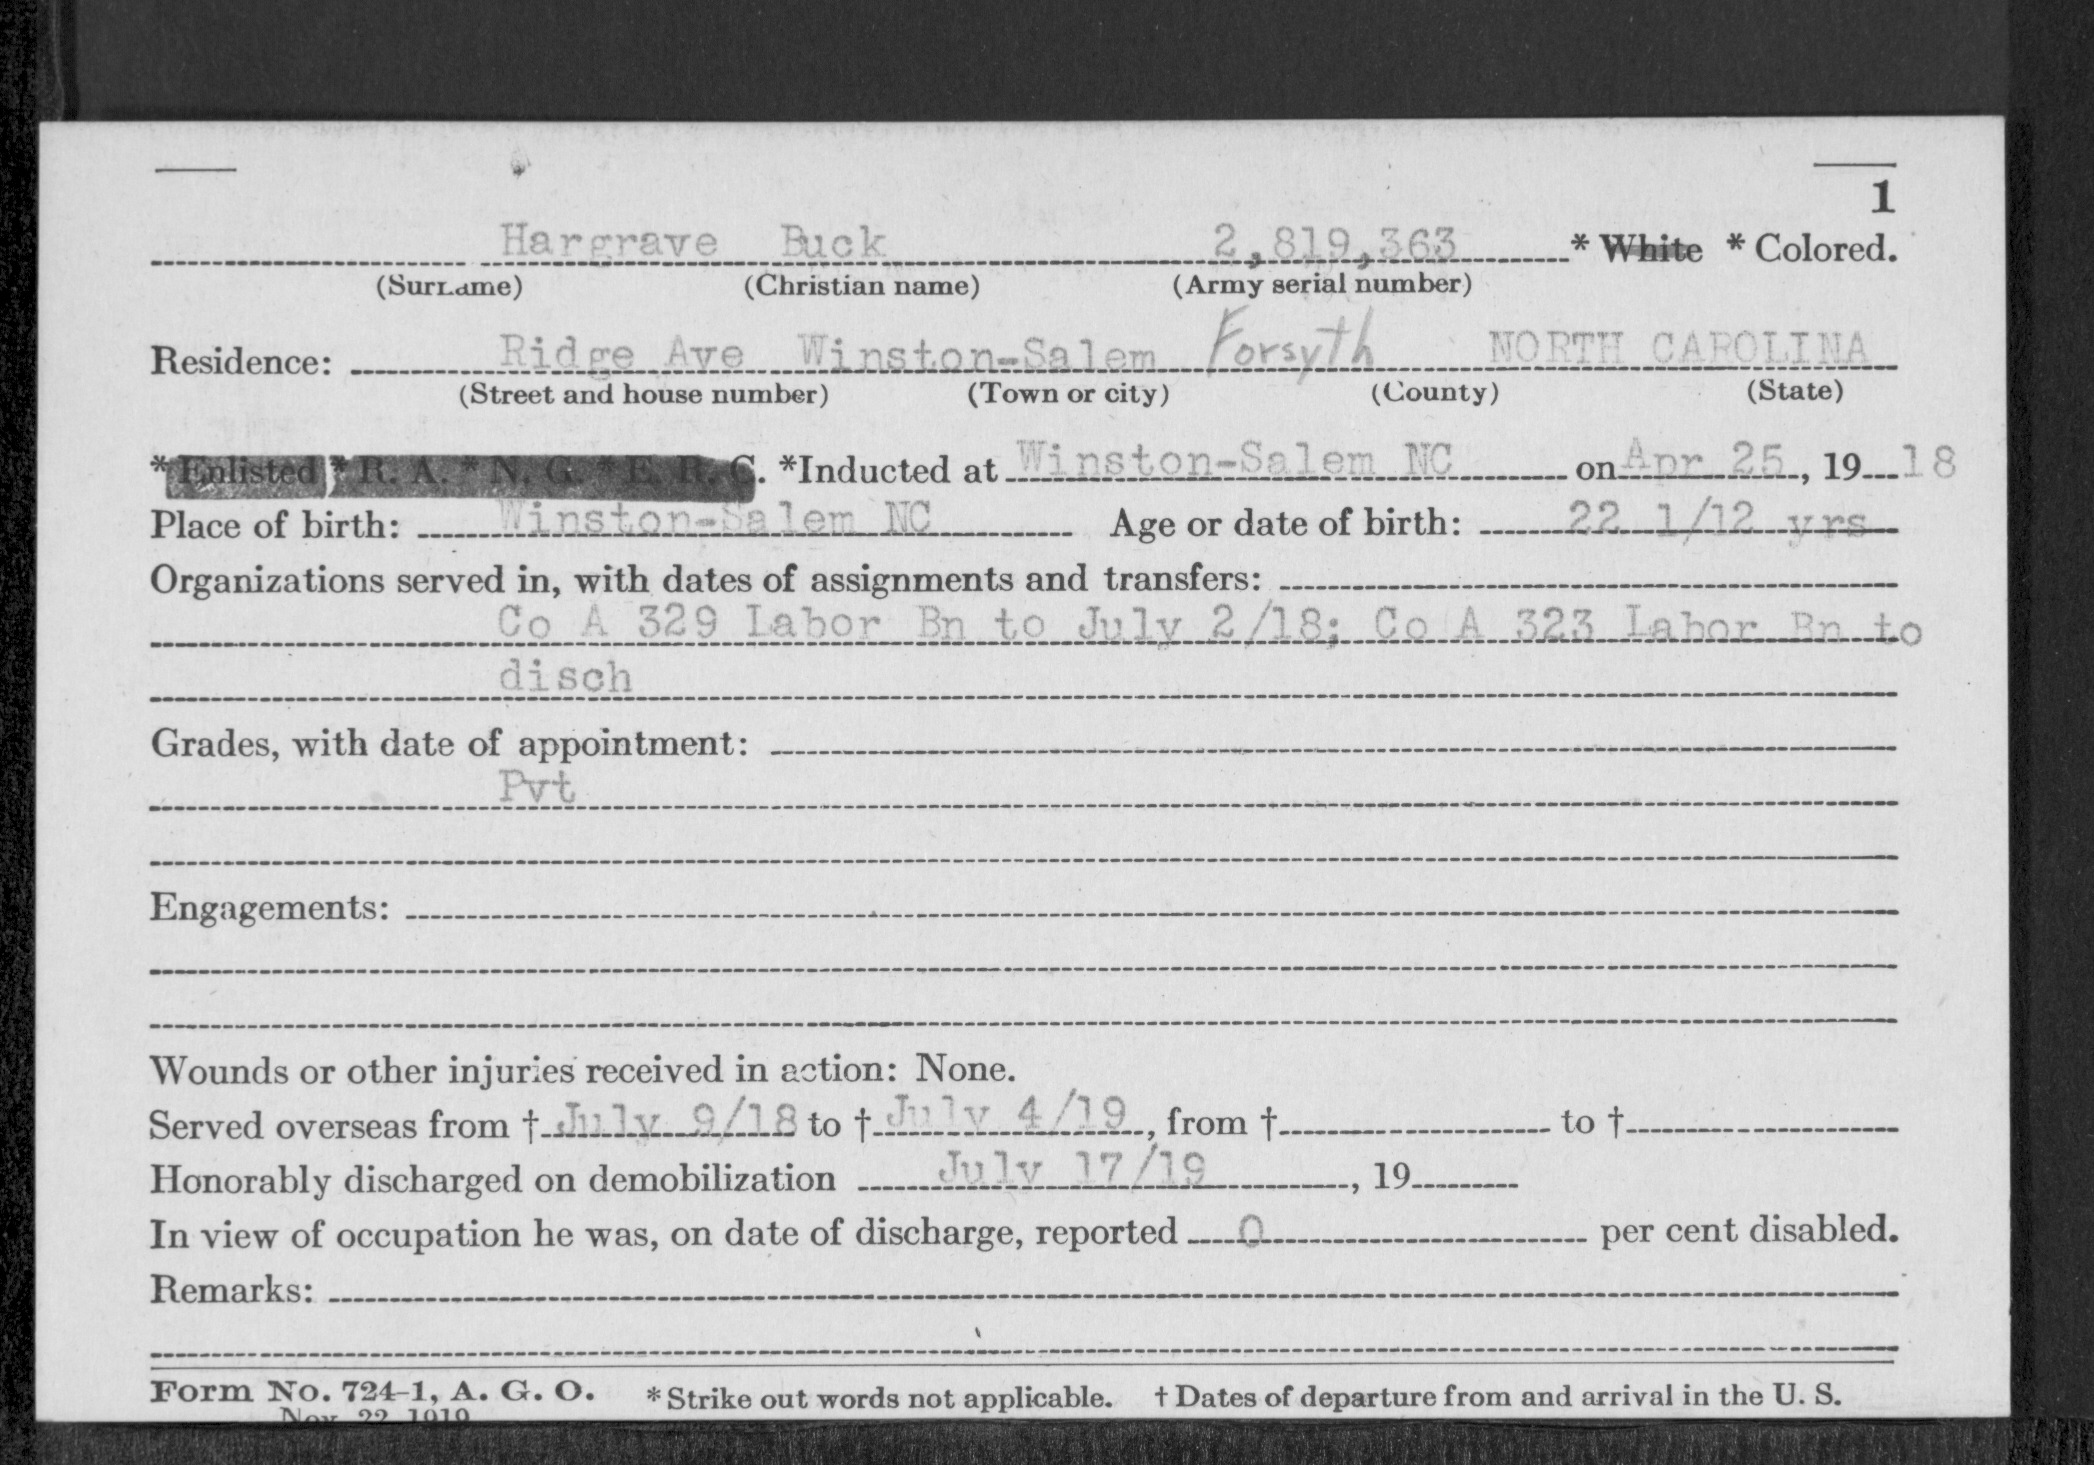 1
Hargrave Buck 2,819,363 * White * Colored.
(Surname) (Christian name) (Army serial number)
Residence: Ridge Ave Winston-Salem Forsyth NORTH CAROLINA
(Street and house number) (Town or city) (County) (State)
* Enlisted * R. A. * N. G. * E. R. C. *Inducted at Winston-Salem NC on Apr 25, 19 18
Place of birth: Winston-Salem NC Age or date of birth: 22 1/12 yrs
Organizations served in, with dates of assignments and transfers:
Co A 329 Labor Bn to July 2/18; Co A 323 Labor Bn to
disch
Grades, with date of appointment:
Pvt
Engagements:
Wounds or other injuries received in action: None.
Served overseas from † July 9/18 to † July 4/19, from † to †
Honorably discharged on demobilization July 17/19, 19
In view of occupation he was, on date of discharge, reported 0 per cent disabled.
Remarks:
Form No. 724-1, A. G. O. * Strike out words not applicable. † Dates of departure from and arrival in the U. S.
Nov. 22, 1919